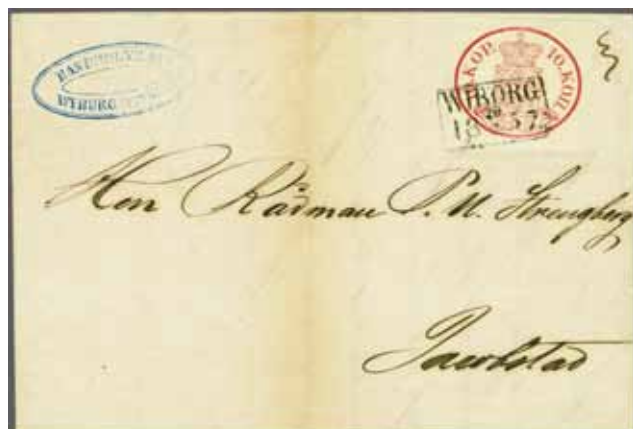 WIBORG
1857
10. KOP. 10. КОП.
WYBURG
Herr Rådman P. U. Strengberg
Jacobstad